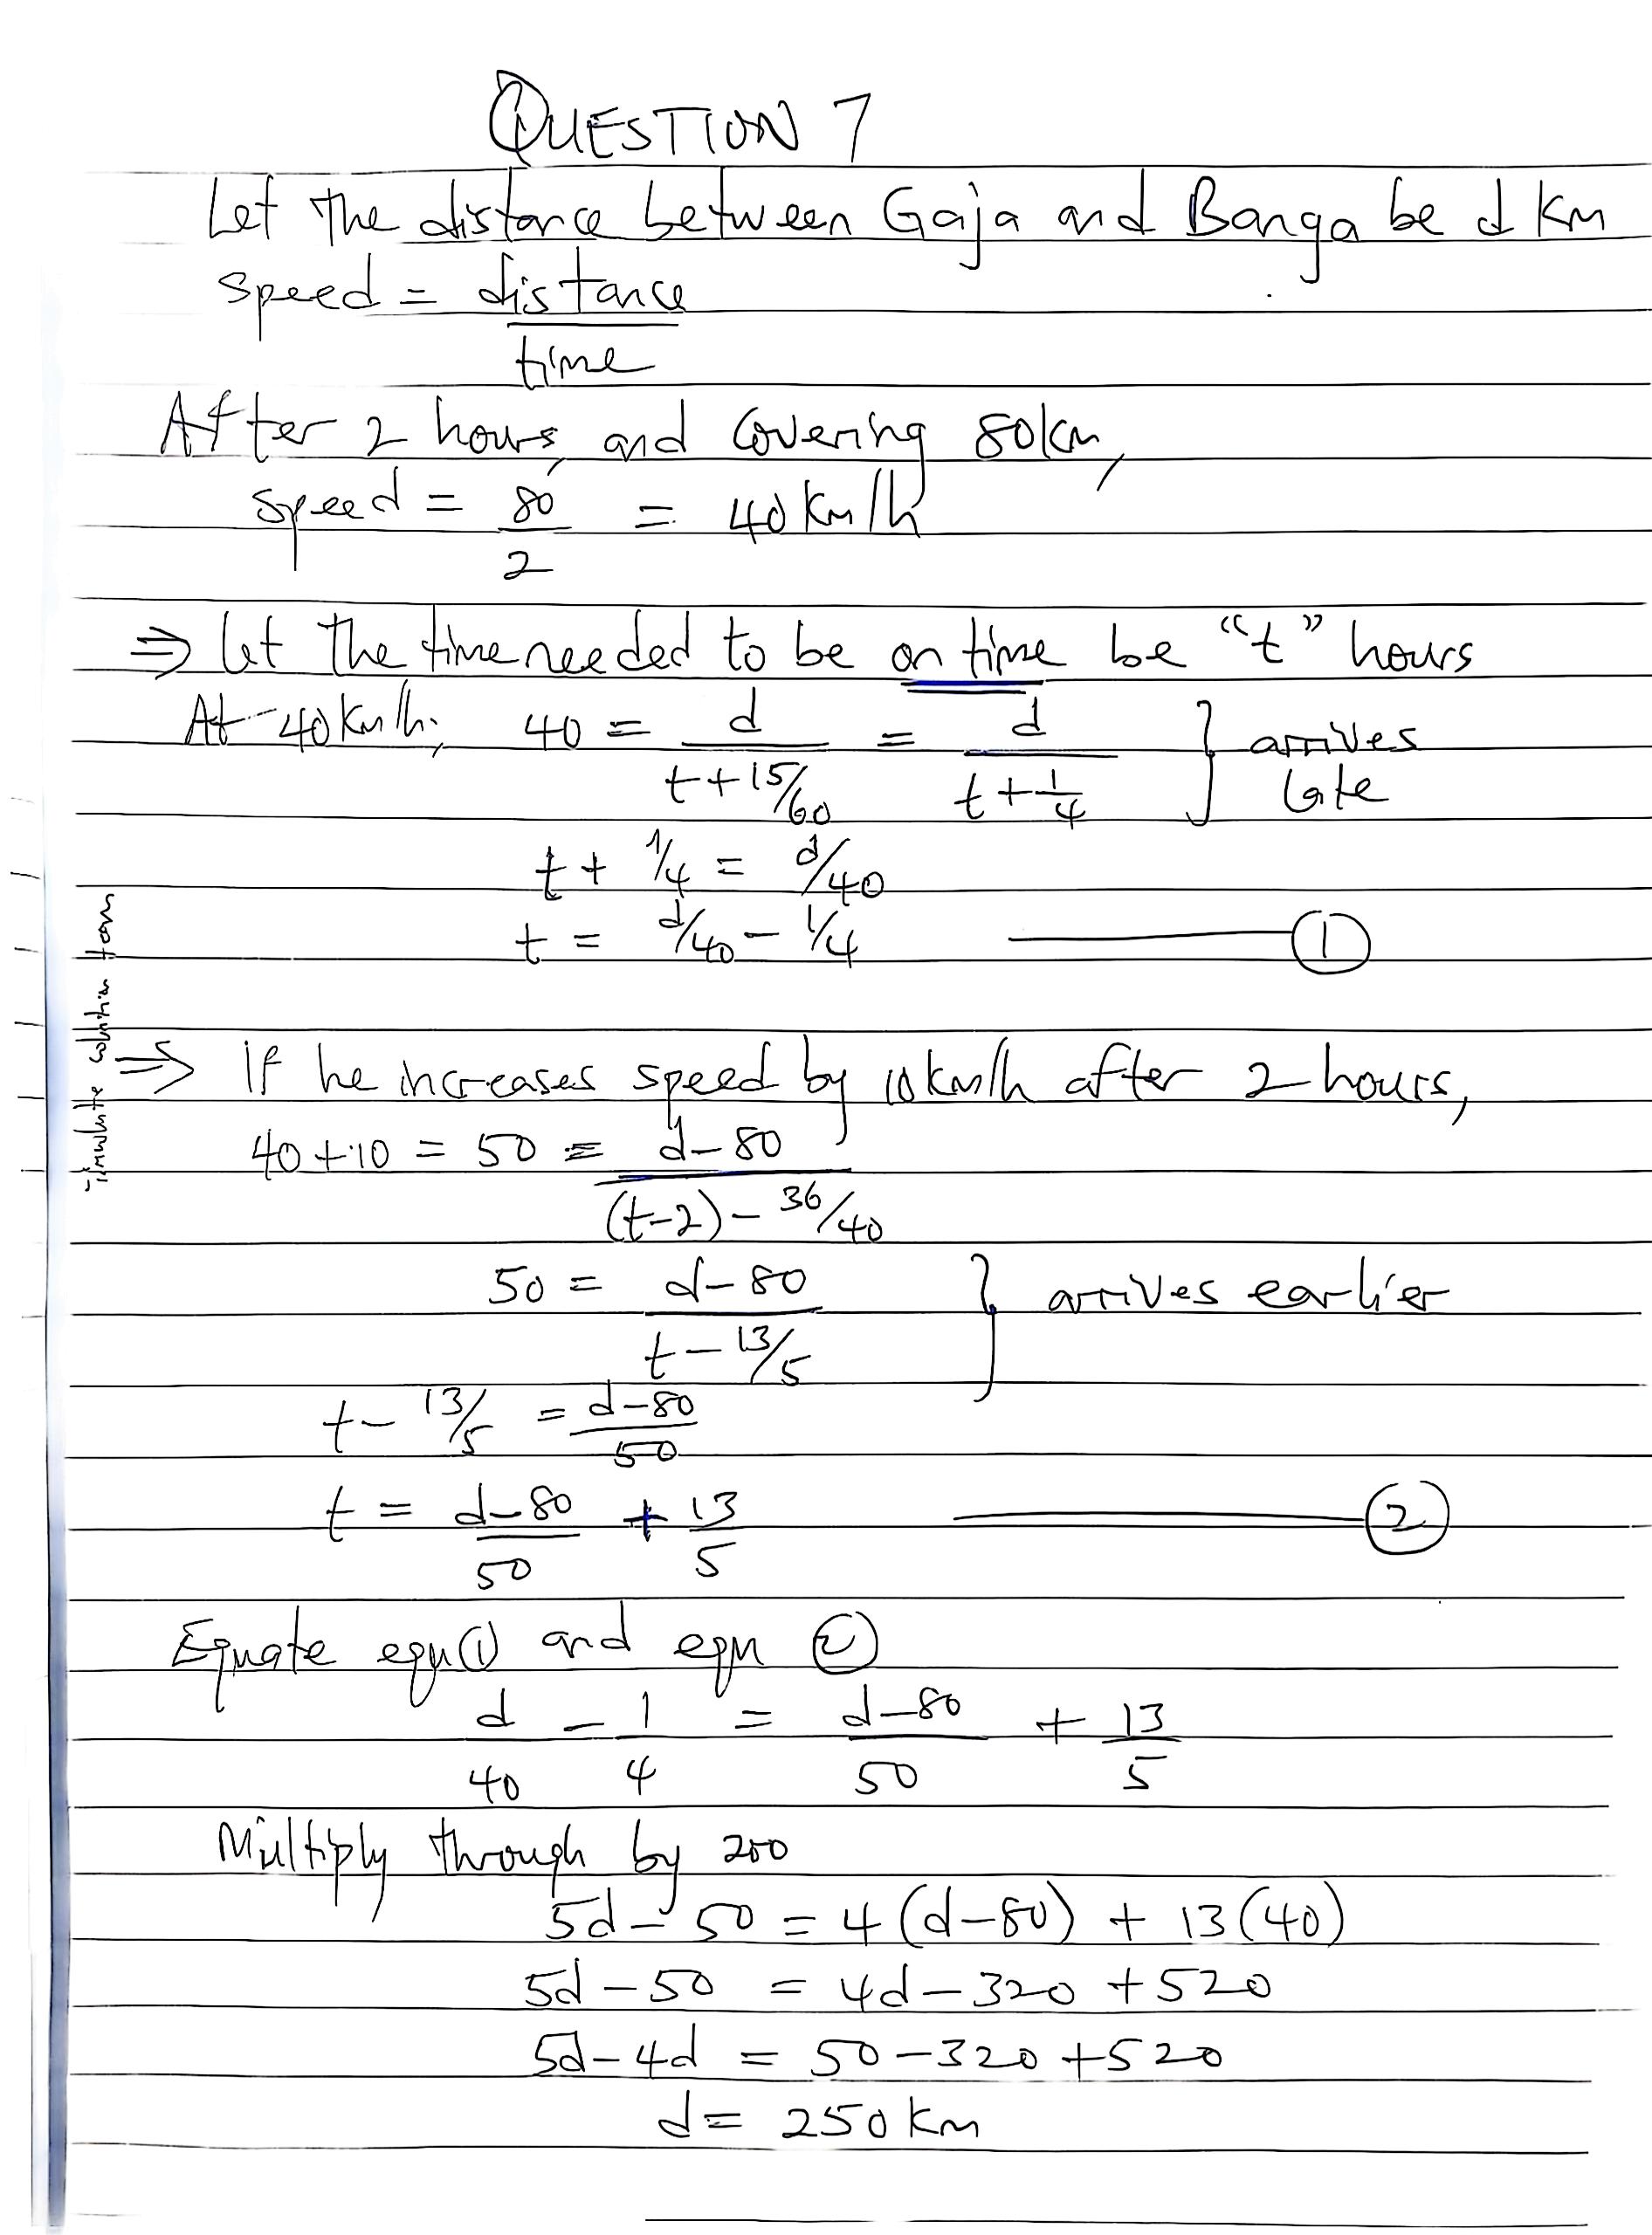 QUESTION 7
Let the distance between Gaja and Banga be d km
speed = distance
time
After 2 hours, and covering 80km,
speed = 80/2 = 40 km/h
⇒ let the time needed to be on time be "t" hours
At 40 km/h; 40 = d/(t + 15/60) = d/(t + 1/4) } arrives late
t + 1/4 = d/40
t = d/40 - 1/4 ——— ①
⇒ If he increases speed by 10km/h after 2 hours,
40 + 10 = 50 = (d-80)/((t-2) - 36/40)
50 = (d-80)/(t - 13/5) } arrives earlier
t - 13/5 = (d-80)/50
t = (d-80)/50 + 13/5 ——— ②
Equate eqn① and eqn ②
d/40 - 1/4 = (d-80)/50 + 13/5
Multiply through by 200
5d - 50 = 4(d-80) + 13(40)
5d - 50 = 4d - 320 + 520
5d - 4d = 50 - 320 + 520
d = 250 km